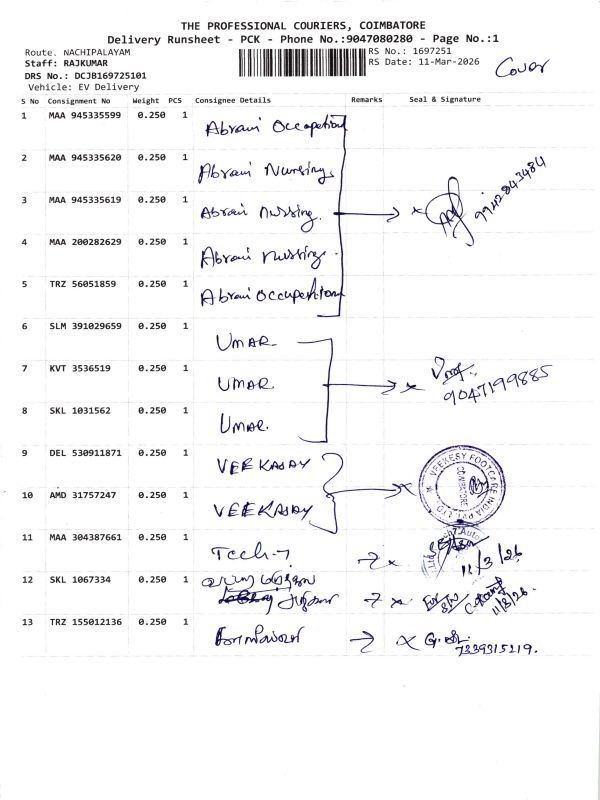 THE PROFESSIONAL COURIERS, COIMBATORE
Delivery Runsheet - PCK - Phone No.:9047080280 - Page No.:1
Route. NACHIPALAYAM
RS No.: 1697251
Staff: RAJKUMAR
RS Date: 11-Mar-2026
Cover
DRS No.: DCJB169725101
Vehicle: EV Delivery
S No Consignment No Weight PCS Consignee Details Remarks Seal & Signature
1 MAA 945335599 0.250 1 Abrami Occupetion
2 MAA 945335620 0.250 1 Abrami Nursing
3 MAA 945335619 0.250 1 Abrami nursing. 9942843484
4 MAA 200282629 0.250 1 Abrami nursing
5 TRZ 56051859 0.250 1 Abrami Occupetion
6 SLM 391029659 0.250 1 UMAR
7 KVT 3536519 0.250 1 UMAR 9047199885
8 SKL 1031562 0.250 1 UMAR
9 DEL 530911871 0.250 1 VEEKASAY
VEEKESY FOOTCARE INDIA PVT LTD
COIMBATORE
10 AMD 31757247 0.250 1 VEEKASAY
11 MAA 304387661 0.250 1 Tech-7 11/3/26
12 SKL 1067334 0.250 1 11/3/26
13 TRZ 155012136 0.250 1 7339315219.